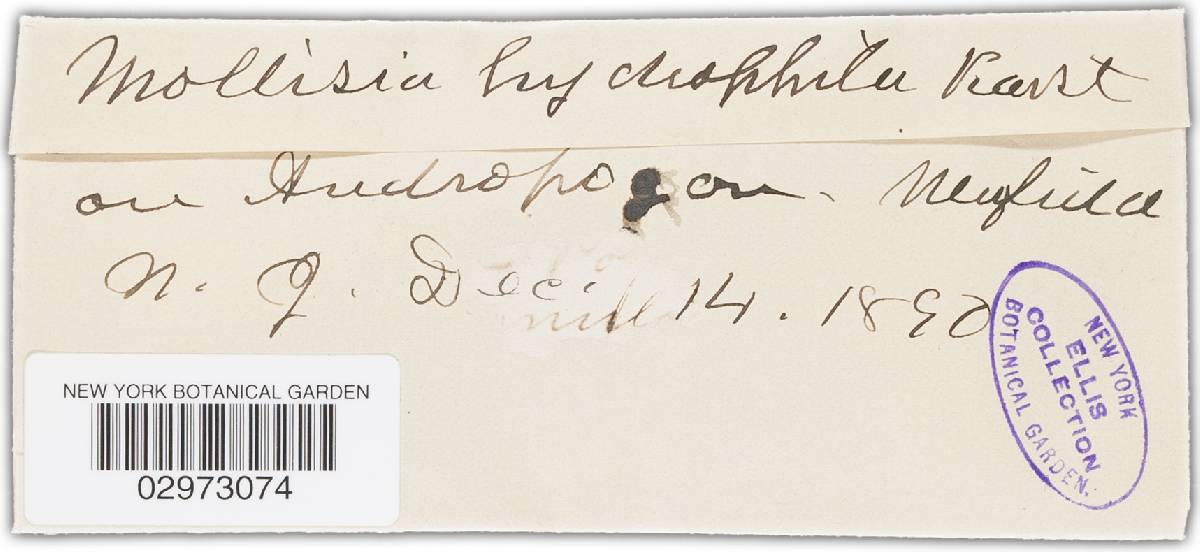 Mollisia hydrophila Karst
on Andropogon. Newfield
N. J. Dec. 14. 1890
NEW YORK BOTANICAL GARDEN
02973074
NEW YORK
ELLIS
COLLECTION
BOTANICAL GARDEN.